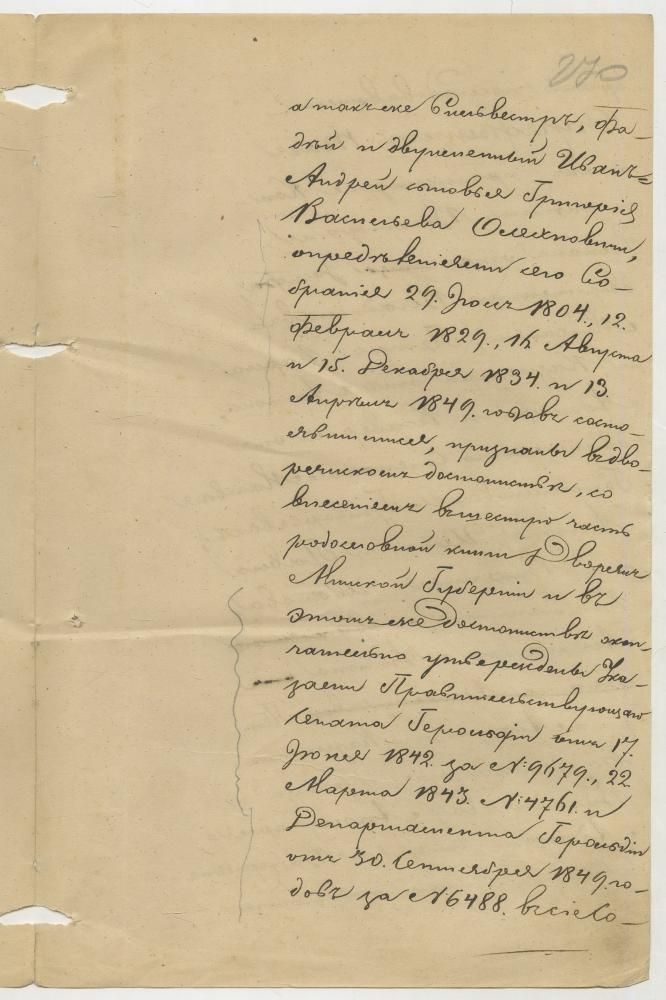 270
а также Сильвестръ, Фа-
дѣй и двуименный Иванъ=
Андрей сыновья Григорія
Васильева Олехновичи,
опредѣленіями сего Со-
бранія 29. Іюля 1804., 12.
Февраля 1829., 16. Августа
и 15. Декабря 1834. и 13.
Апрѣля 1849. годовъ состо-
явшимися, признаны въ дво-
рянскомъ достоинствѣ, со
внесеніемъ въ шестую часть
родословной книги Дворянъ
Минской Губерніи и въ
этомъ же достоинствѣ окон-
чательно утверждены Ука-
зами Правительствующаго
Сената Герольдіи отъ 17.
Іюня 1842. за №: 9679., 22.
Марта 1843. №: 4761. и
Департамента Герольдіи
отъ 30. Сентября 1849 го-
довъ за № 6488. въ сіе Со-